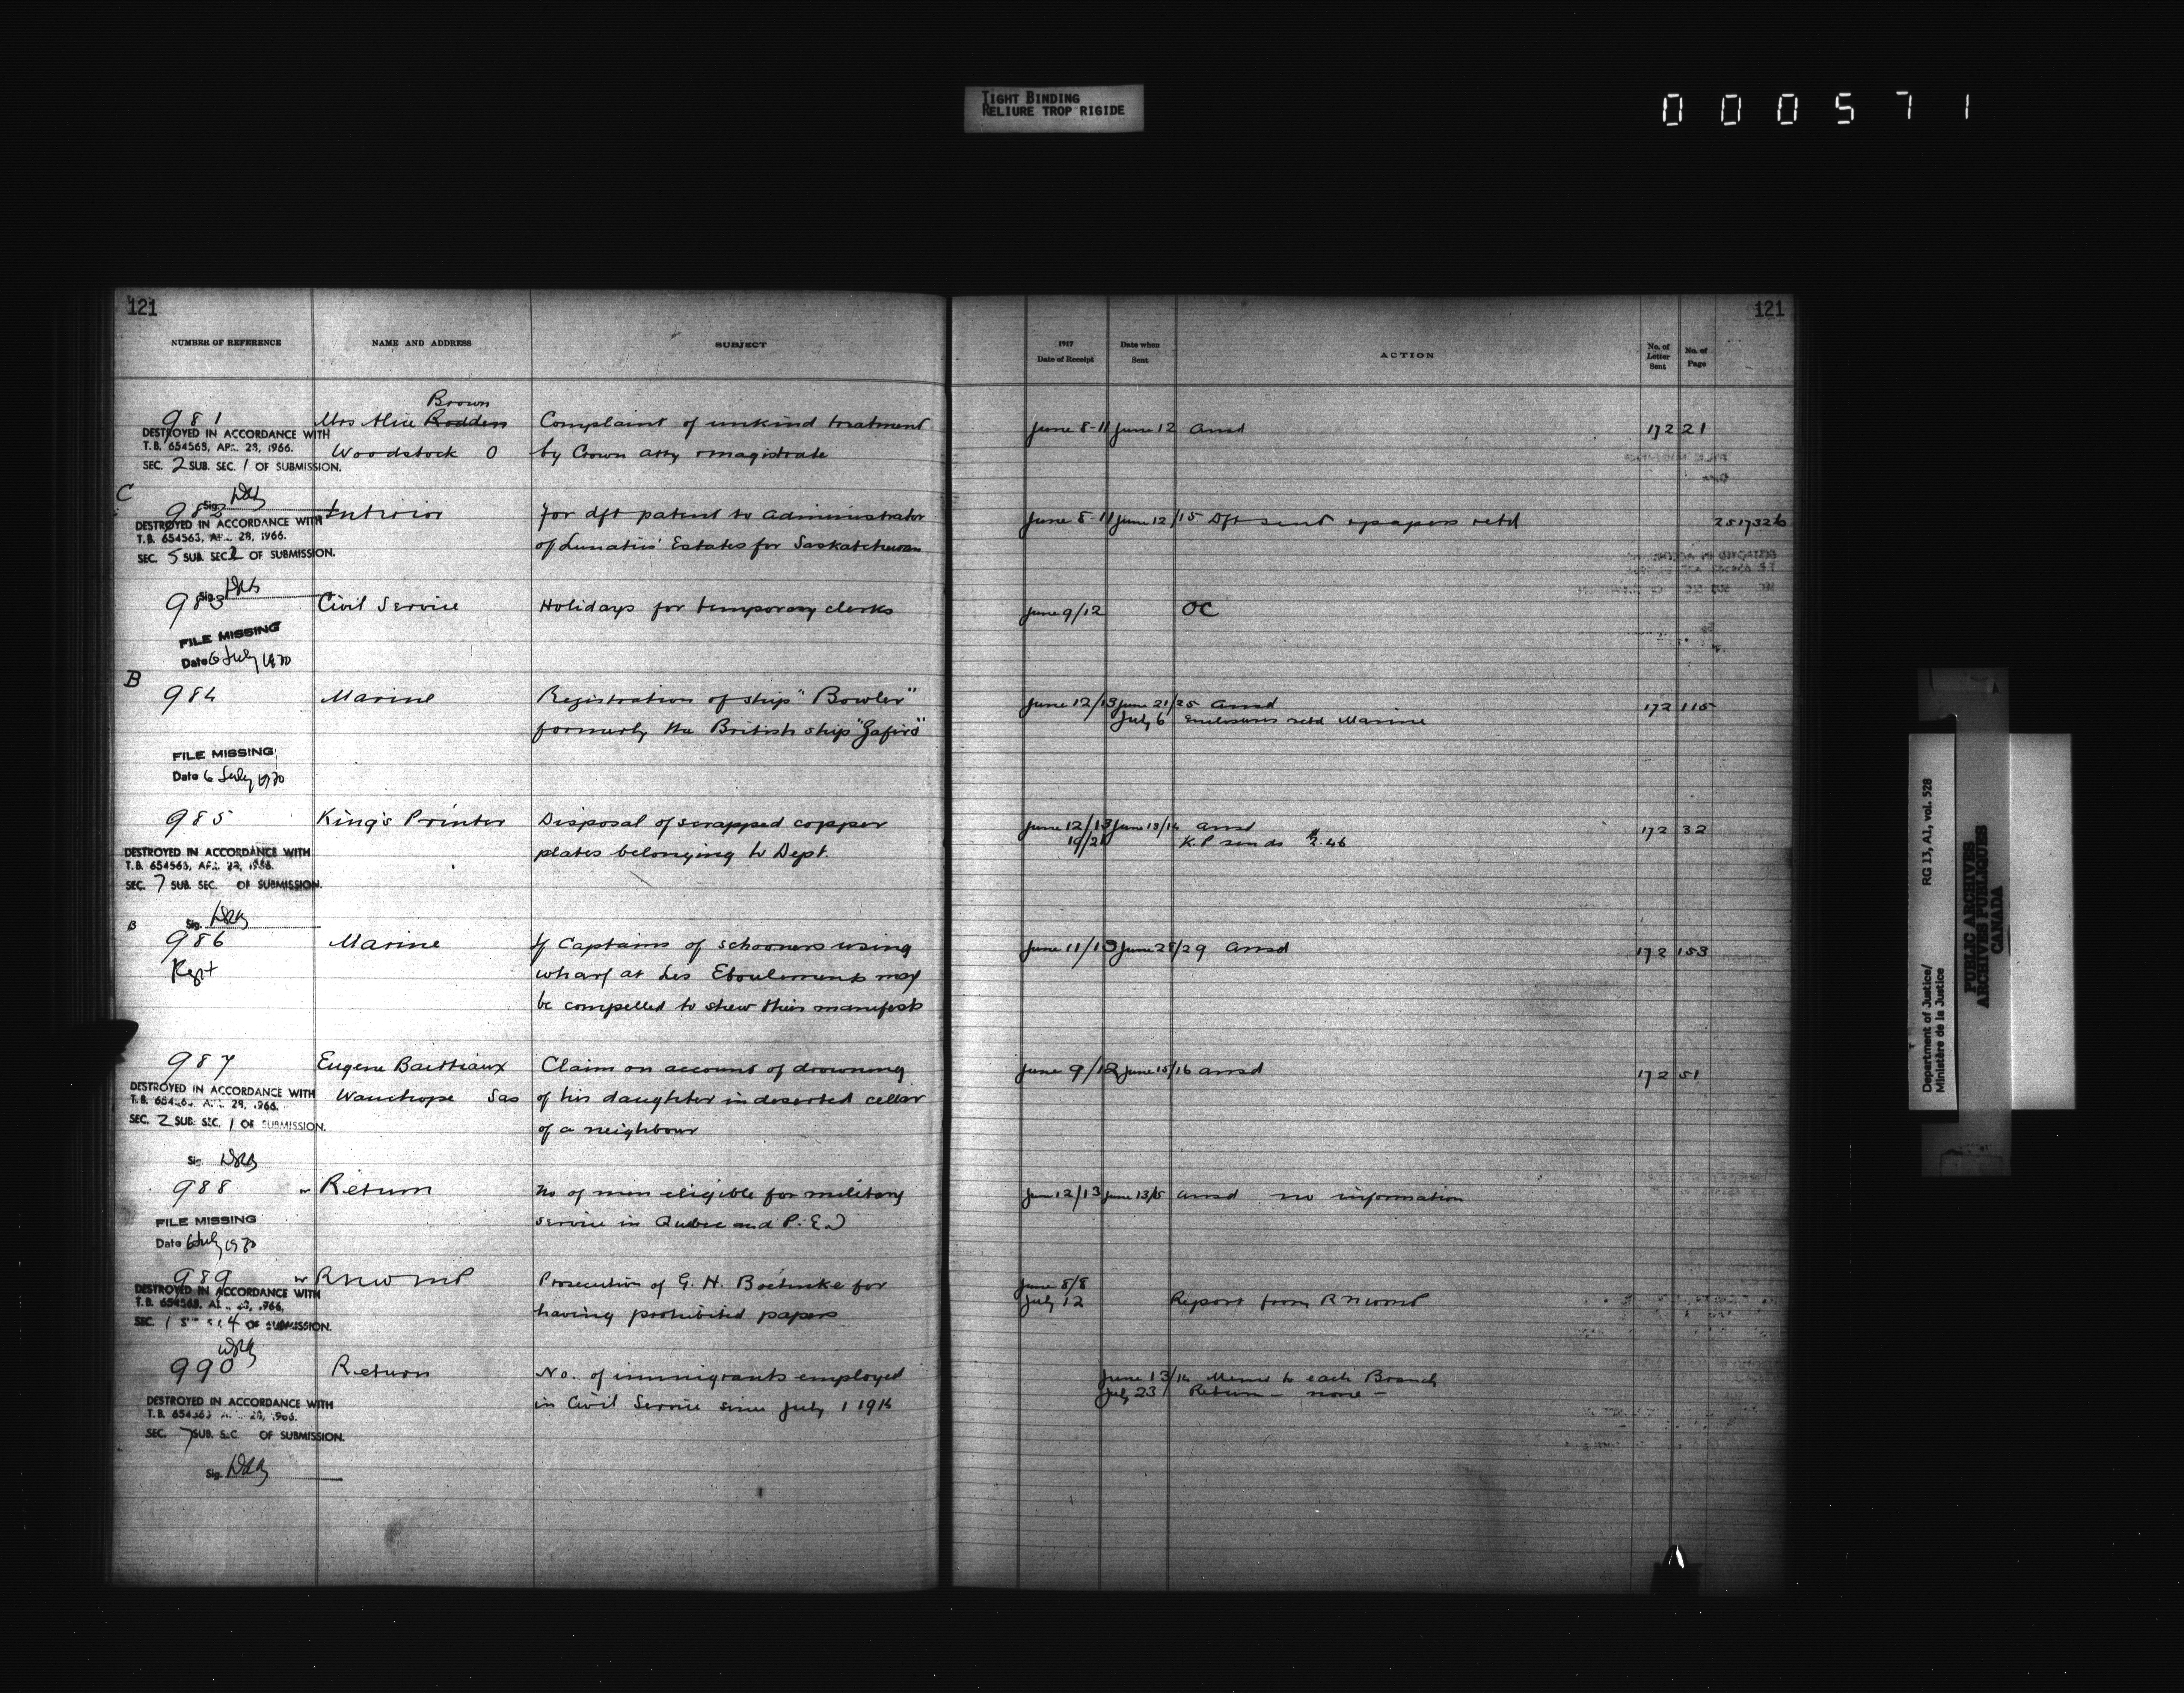 TIGHT BINDING
RELIURE TROP RIGIDE
000571
121
121
NUMBER OF REFERENCE
NAME AND ADDRESS
SUBJECT
1917
Date of Receipt
Date when
Sent
ACTION
No. of
Letter
Sent
No. of
Page
Brown
981 Mrs Alice Rodden Complaint of unkind treatment June 8-11 June 12 Ansd 172 21
DESTROYED IN ACCORDANCE WITH
T.B. 654563, APR. 28, 1966.
Woodstock O by Crown atty & magistrate
SEC. 2 SUB. SEC. 1 OF SUBMISSION.
Sig.
C
982 Interior For dft patent to administrator June 8-11 June 12/15 Dft sent & papers retd 2517326
DESTROYED IN ACCORDANCE WITH
T.B. 654563, APR. 28, 1966.
of Lunatics' Estates for Saskatchewan
SEC. 5 SUB. SEC. 2 OF SUBMISSION.
Sig.
983 Civil Service Holidays for temporary clerks June 9/12 OC
FILE MISSING
Date 6 July 1970
B
984 Marine Registration of ship "Bowler" June 12/13 June 21/25 Ansd 172 115
formerly the British ship "Zafiro" July 6 Enclosures retd Marine
FILE MISSING
Date 6 July 1970
985 King's Printer Disposal of scrapped copper June 12/13 June 13/14 Ansd 172 32
plates belonging to Dept. 19/21 K.P sends $2.46
DESTROYED IN ACCORDANCE WITH
T.B. 654563, APR. 28, 1966.
SEC. 7 SUB. SEC. OF SUBMISSION.
Sig.
B
986 Marine If Captains of schooners using June 11/13 June 28/29 Ansd 172 153
Kept wharf at Les Eboulements may
be compelled to shew their manifests
987 Eugene Bastiaux Claim on account of drowning June 9/12 June 15/16 ansd 172 51
DESTROYED IN ACCORDANCE WITH
T.B. 654563, APR. 28, 1966.
Wauchope Sas of his daughter in deserted cellar
SEC. 2 SUB. SEC. 1 OF SUBMISSION.
of a neighbour
Sig.
988 Return No of men eligible for military June 12/13 June 13/15 ansd no information
service in Quebec and P.E.I
FILE MISSING
Date 6 July 1970
989 RNWMP Prosecution of G. H. Boehnke for June 8/8
DESTROYED IN ACCORDANCE WITH
T.B. 654563, APR. 28, 1966.
having prohibited papers July 12 Report from RNWMP
SEC. 1 SUB. SEC. 4 OF SUBMISSION.
990 Return No. of immigrants employed June 13/14 Memo to each Branch
in Civil Service since July 1 1916 July 23 Return - none -
DESTROYED IN ACCORDANCE WITH
T.B. 654563 APR. 28, 1966.
SEC. 7 SUB. SEC. OF SUBMISSION.
Sig.
Department of Justice/
Ministère de la Justice
RG 13, A1, vol. 528
PUBLIC ARCHIVES
ARCHIVES PUBLIQUES
CANADA